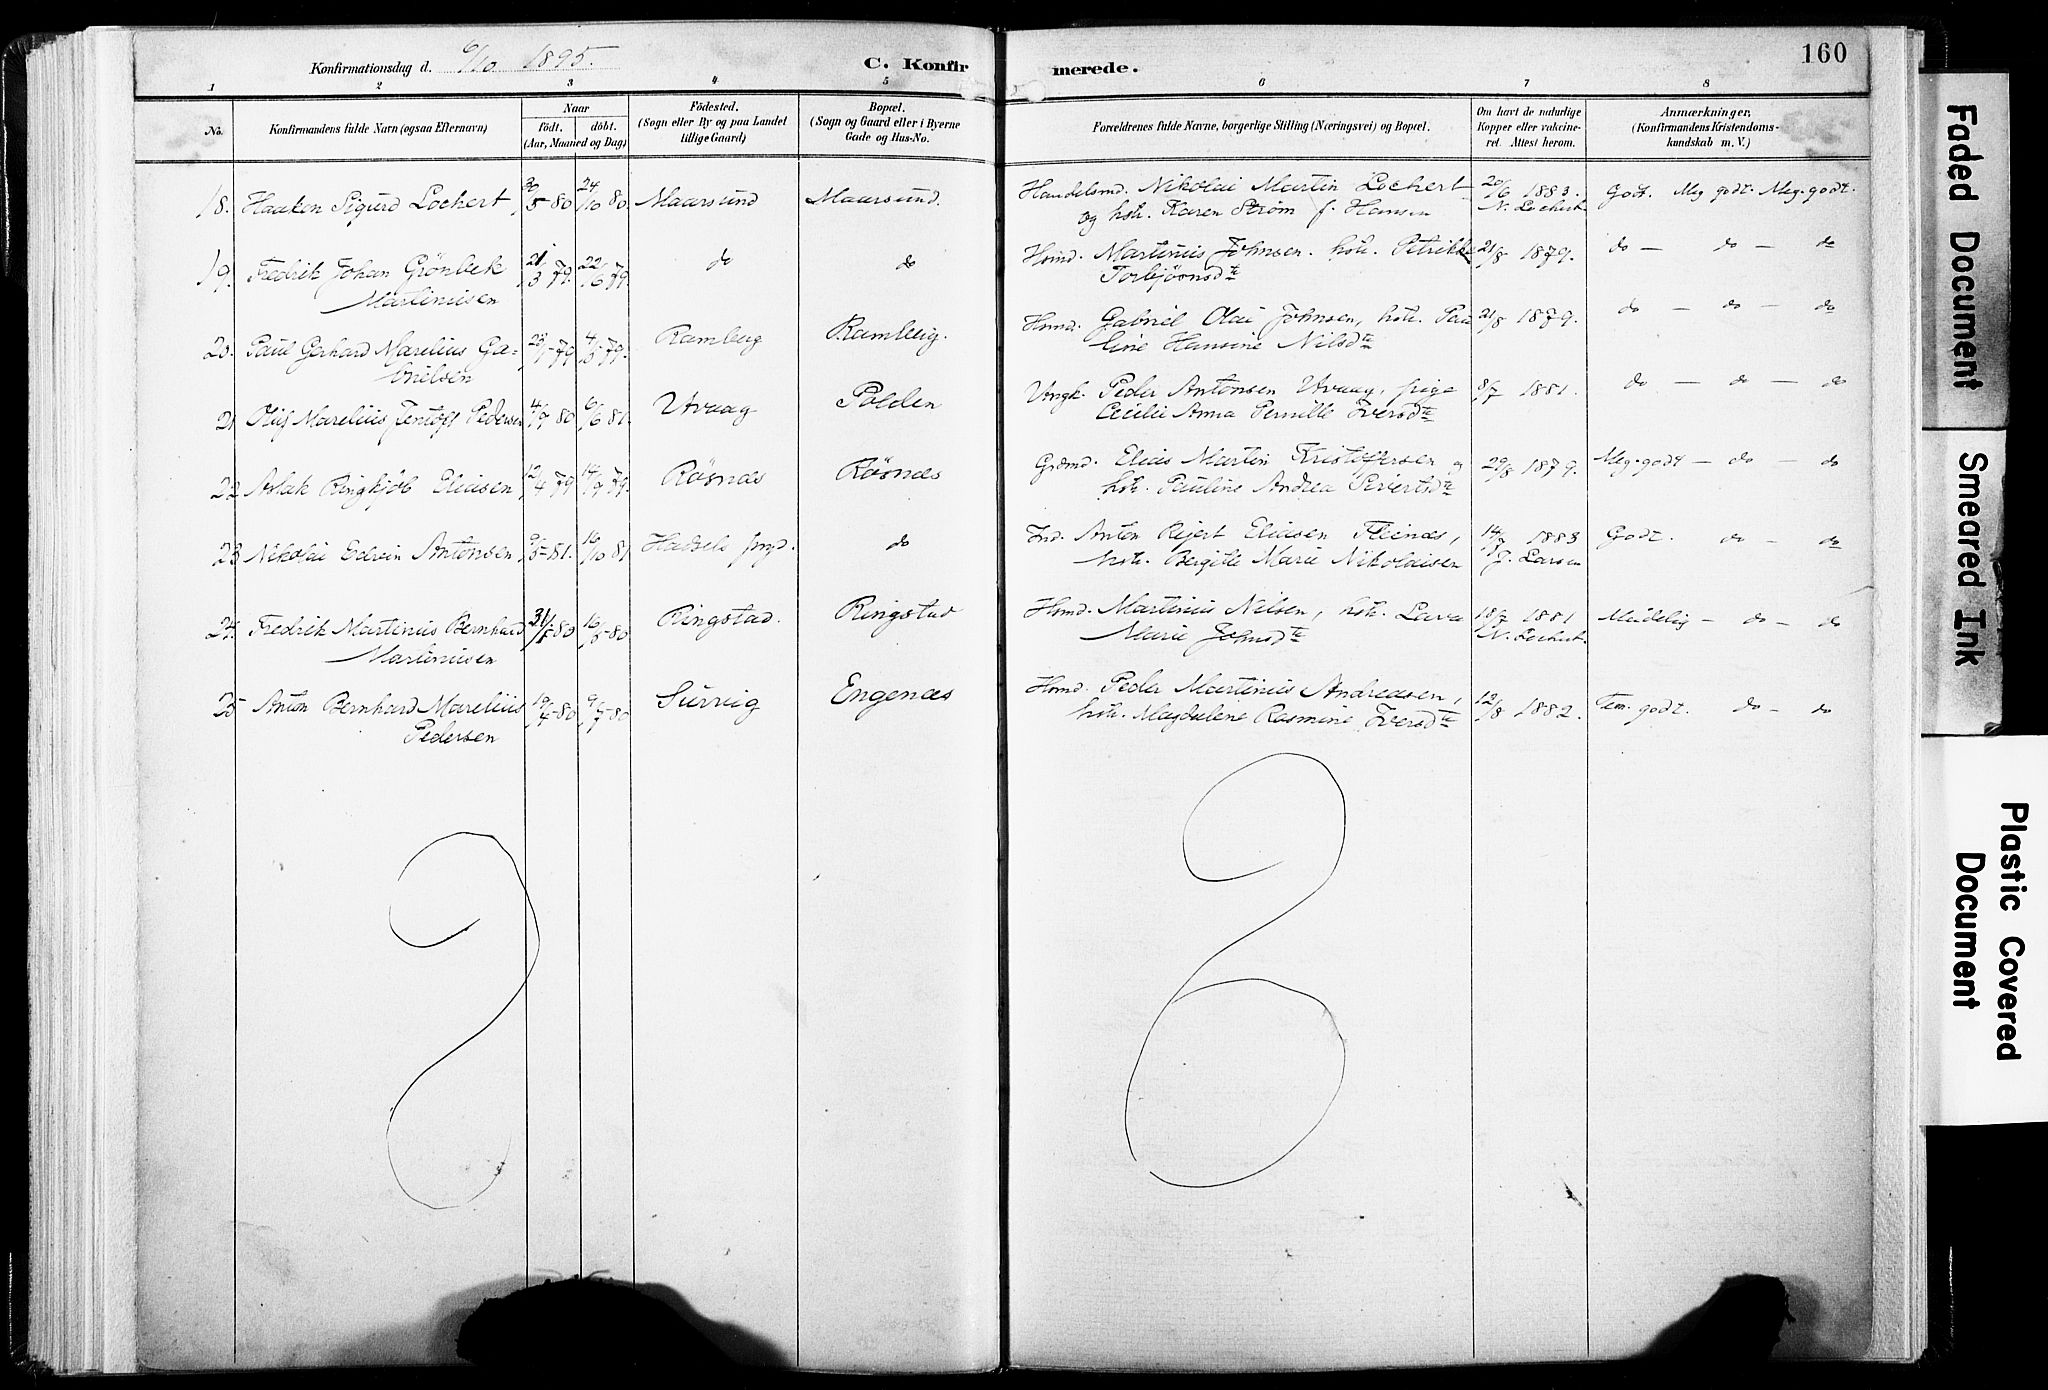 Konfirmationsdag d. 6/10 1895. C. Konfirmerede. 160
1 2 3 4 5 6 7 8
No. Konfirmandens fulde Navn (ogsaa Efternavn) Naar født. døbt. (Aar, Maaned og Dag) Fødested. (Sogn eller By og paa Landet tillige Gaard) Bopæl. (Sogn og Gaard eller i Byerne Gade og Hus-No. Forældrenes fulde Navne, borgerlige Stilling (Næringsvei) og Bopæl. Om havt de naturlige Kopper eller vakcineret. Attest herom. Anmærkninger, (Konfirmandens Kristendomskundskab m. V.)
18. Haaken Sigurd Lochert 30/5-80 24/10 80 Maarsund Maarsund. Handelsmd. Nikolai Martin Lochert 20/6 1883. Godt. Meg godt. Meg. godt.
og hstr. Karen Strøm f. Hansen N. Lochert
19. Fredrik Johan Grönbek 21/3 79. 22/6 79. do do Hsmd. Martinus Johnsen. hstr. Petrikke 21/8 1879. do — do — do
Martinusen Torbjörnsdtr
20. Paul Gerhard Marelius Ga- 23/1-79 4/5 79. Ramberg Ramberg. Hsmd. Gabriel Olai Johnsen, hstr. Pau 21/8 1879. do — do — do
brielsen line Hansine Nilsdtr
21 Oluf Marelius Jentoft Pedersen 4/9 80 6/6 81. Utvaag Polden Ungk. Peder Antonsen Utvaag, pige 8/7 1881. do — do — do
Cecilie Anna Pernille Iversdtr
22 Aslak Ringkjöb Eliasen 12/4 79 14/9 79. Rösnæs Rösnæs Grdmd. Elias Martin Kristoffersen og 29/8 1879. Meg. godt — do — do
hstr. Pauline Andrea Sivertsdtr
23 Nikolai Edvin Antonsen 2/5-81. 16/10 81 Hadsels prgd. do Ind. Anton Rejert Eliasen Fleinæs, 14/7 1883 Godt. do — do
hstr. Bergitte Marie Nikolaisen J. Larsen
24. Fredrik Martinus Bernhard 31/1-80 16/5-80 Ringstad. Ringstad Hsmd. Martinus Nilsen, hstr. Lava 18/7 1881 Maadelig — do — do
Martinusen Marie Johnsdtr N. Lochert
25 Anton Bernhard Marelius 19/4-80 9/7-80 Survig Engenæs Hsmd. Peder Martinus Andreasen, 12/8 1882. Tem. godt. do — do
Pedersen hstr. Magdalene Rasmine Iversdtr
Faded Document
Smeared Ink
Plastic Covered
Document